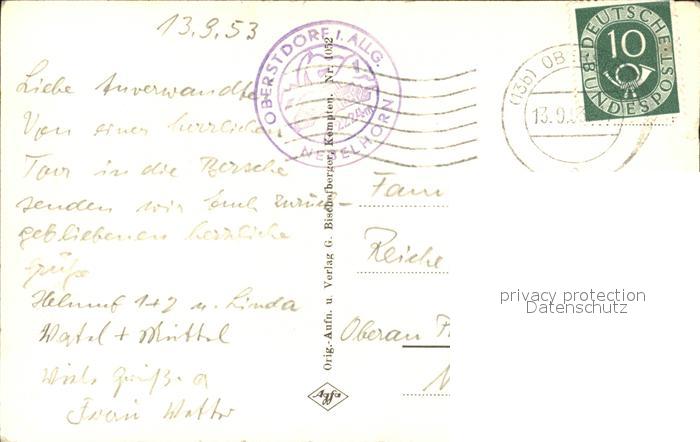 13.9.53
Liebe Anverwandte
Von einer herrlichen
Tour in die Berge
senden wir Euch zurück-
gebliebenen herzliche
Grüße
Helmut 1+2 u. Linda
Viele Grüße
Frau
OBERSTDORF I. ALLG.
NEBELHORN
2224m
Orig.-Aufn. u. Verlag G. Bischofberger, Kempten. Nr. 1052
Agfa
(13b) OB
13.9.53
DEUTSCHE
BUNDESPOST
10
Fam
Reiche
Oberau
privacy protection
Datenschutz